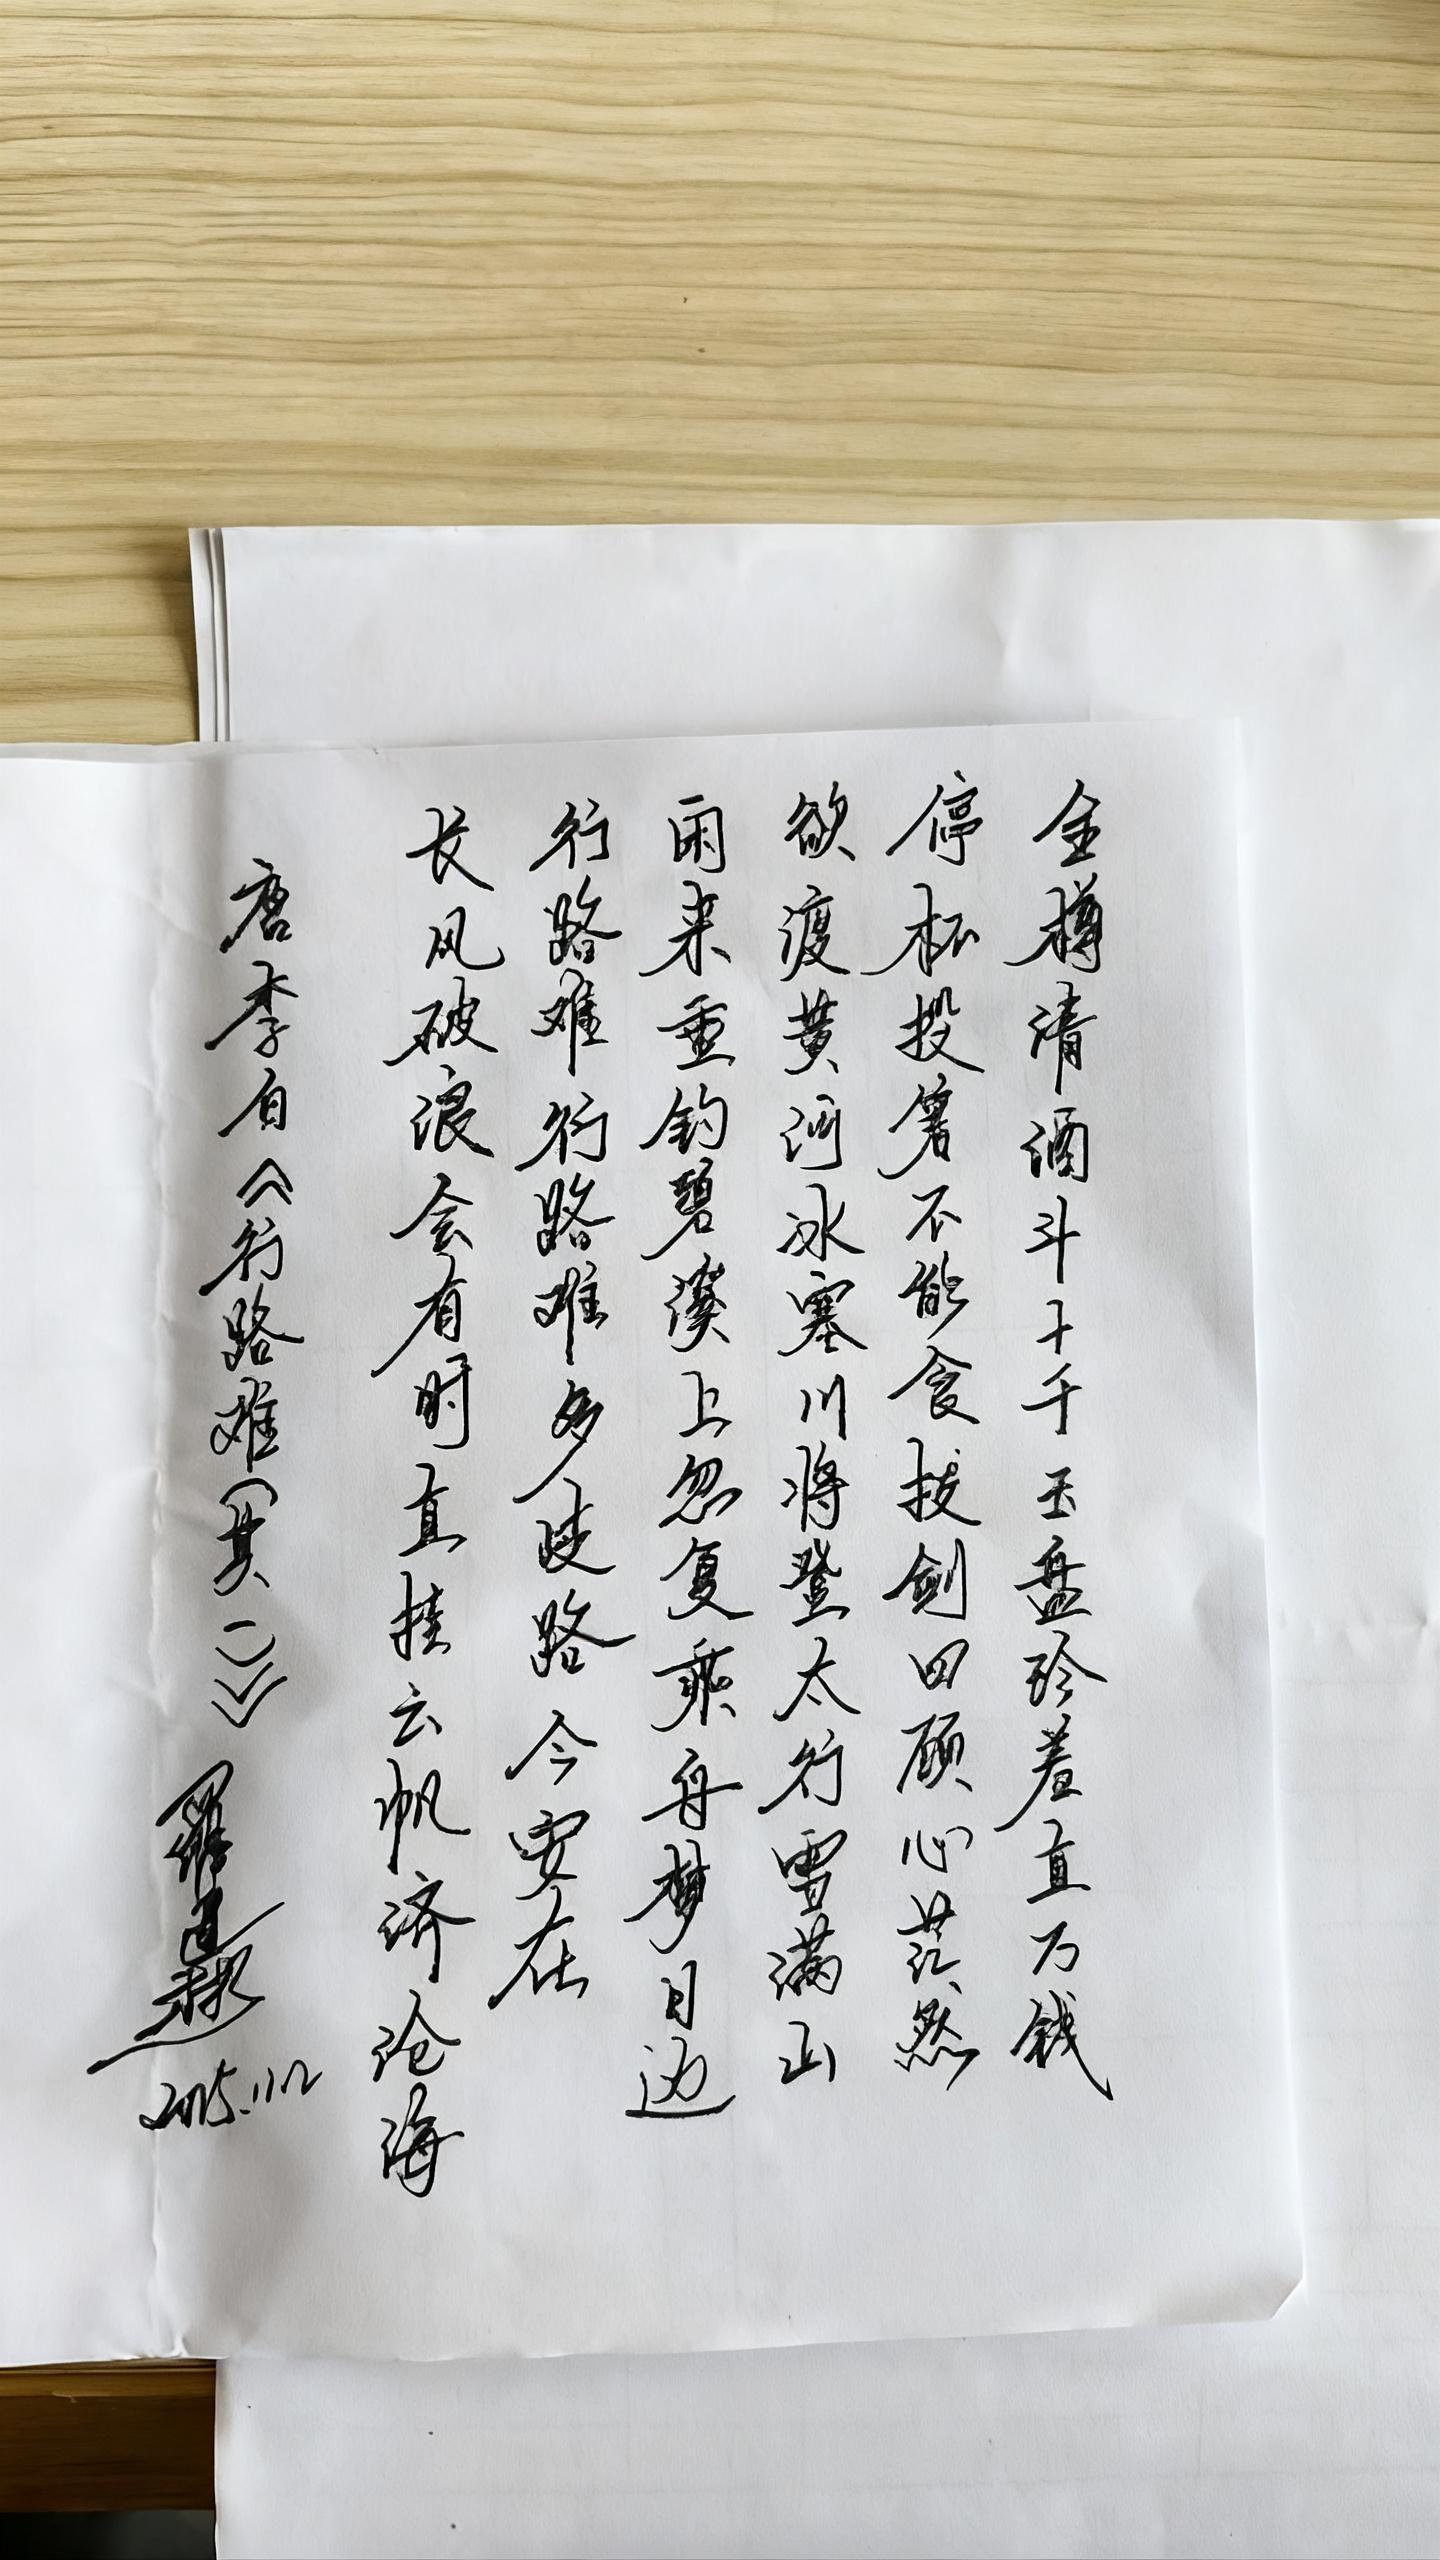 金樽清酒斗十千玉盘珍羞直万钱
停杯投箸不能食拔剑四顾心茫然
欲渡黄河冰塞川将登太行雪满山
闲来垂钓碧溪上忽复乘舟梦日边
行路难行路难多歧路今安在
长风破浪会有时直挂云帆济沧海
唐李白《行路难(其一)》